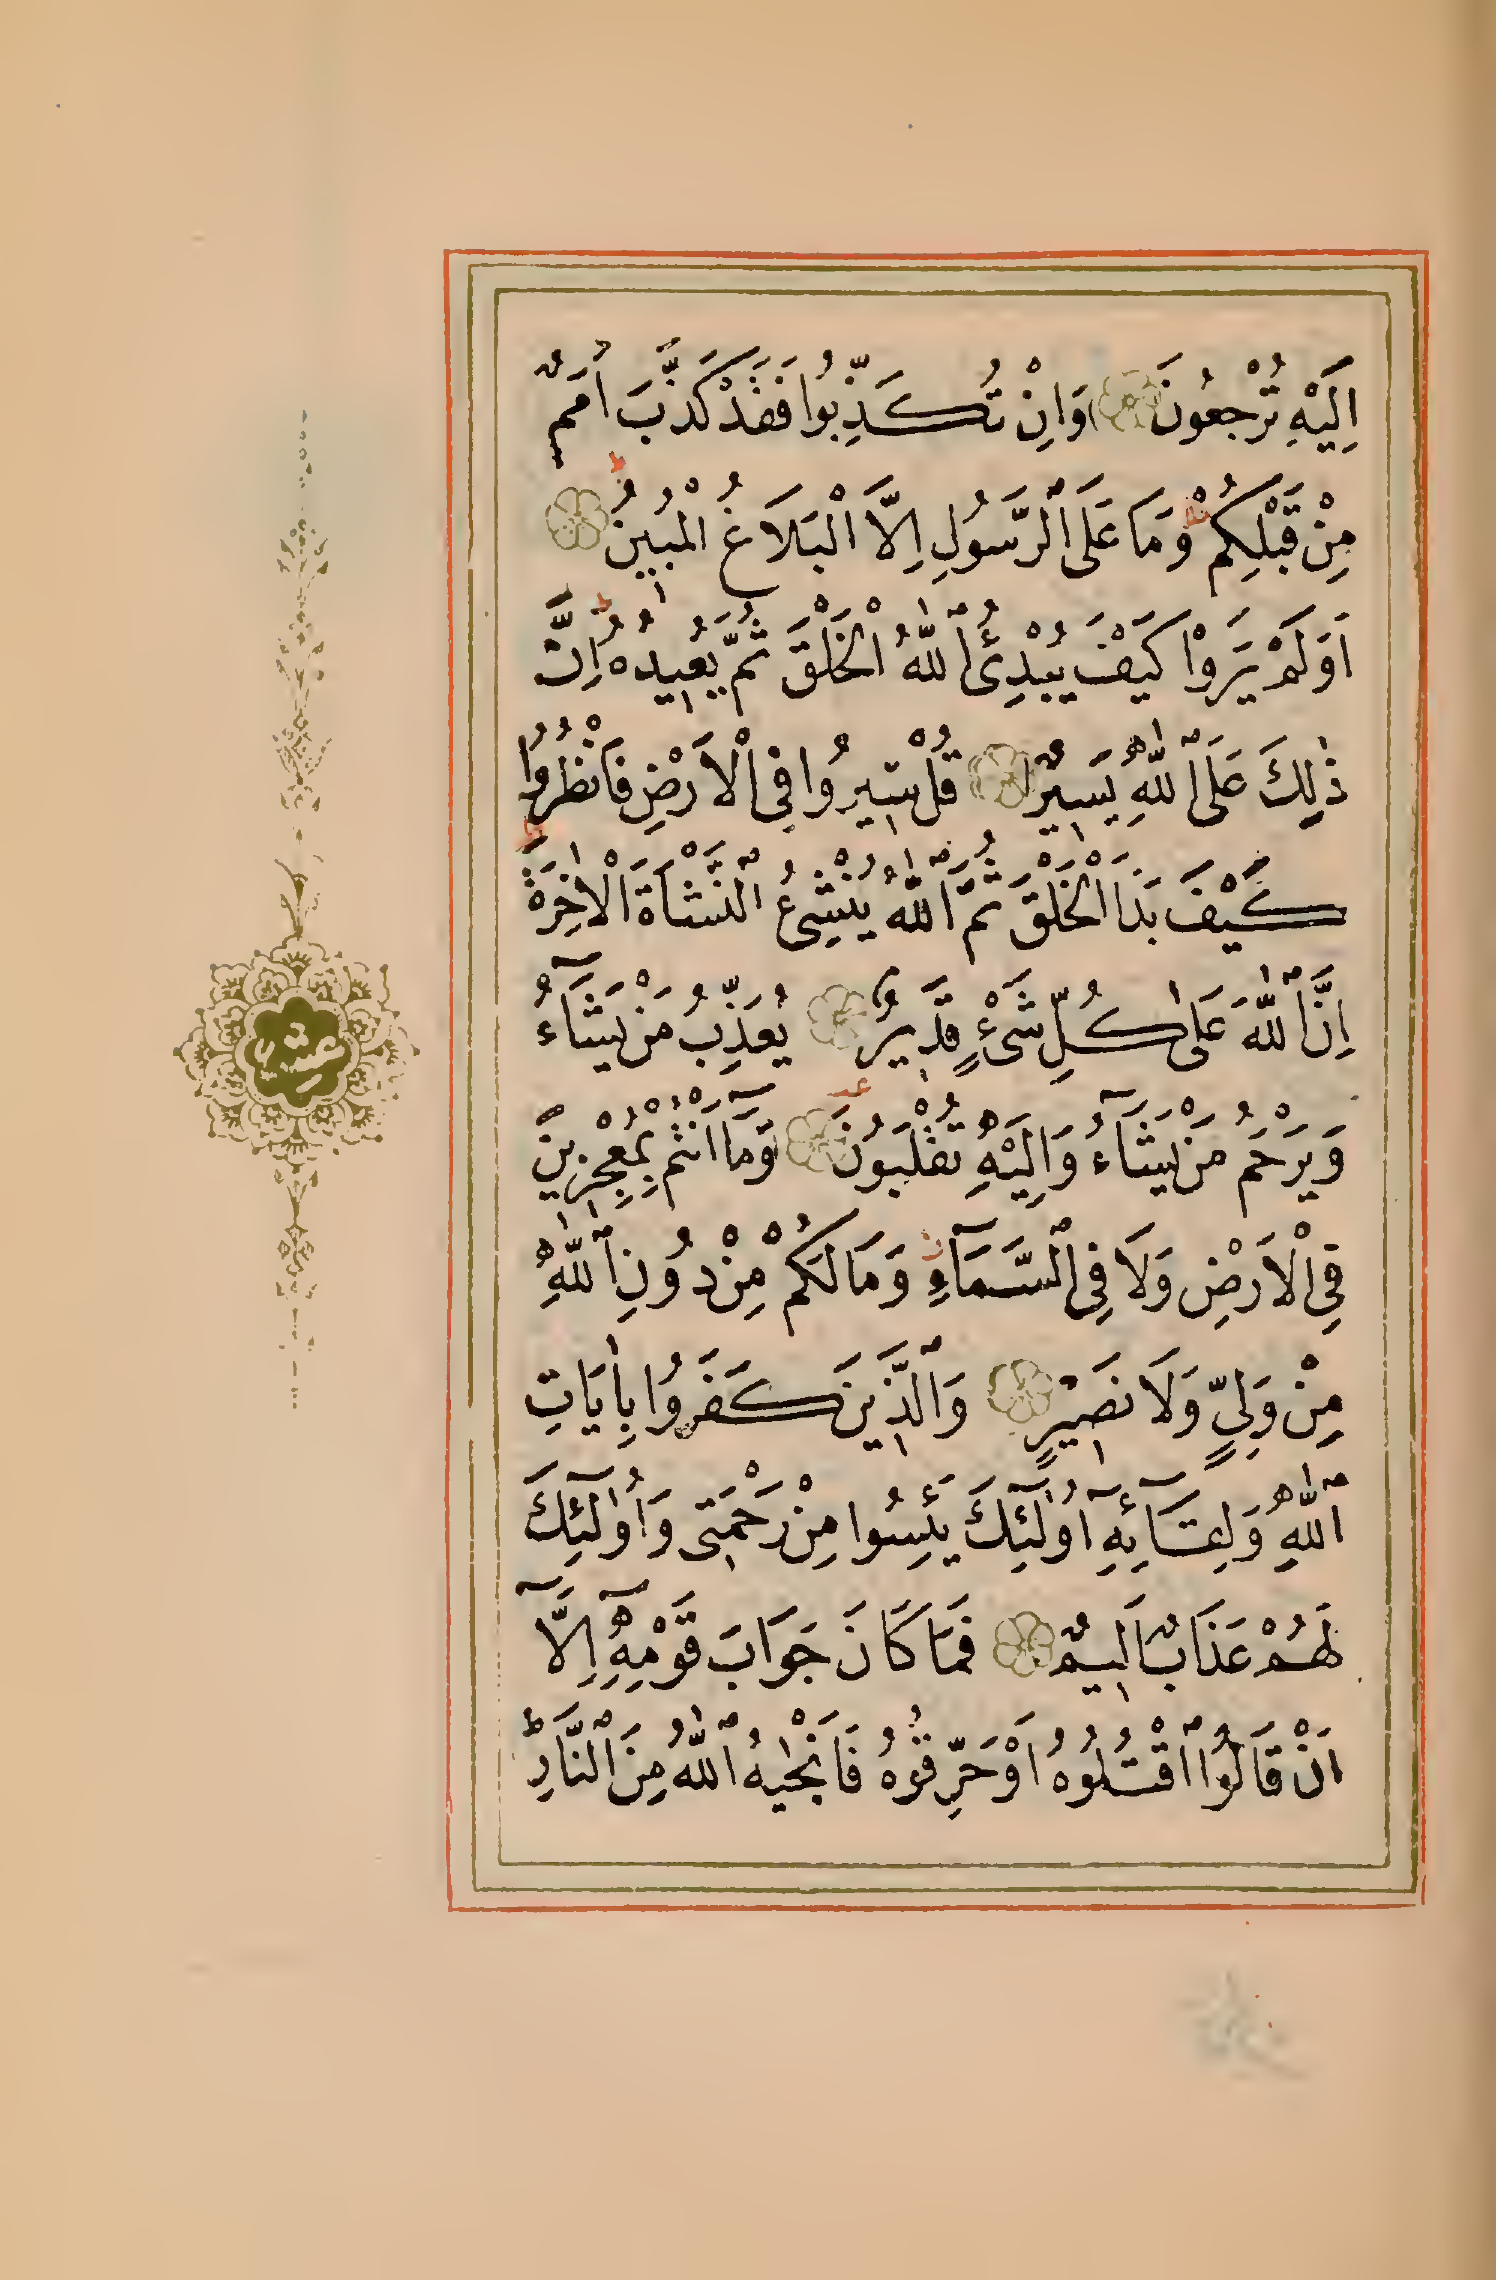 اِلَيْهِ تُرْجَعُونَ وَاِنْ تُكَذِّبُوا فَقَدْ كَذَّبَ اُمَمٌ
مِنْ قَبْلِكُمْ وَمَا عَلَى الرَّسُولِ اِلَّا الْبَلَاغُ الْمُبِينُ
اَوَلَمْ يَرَوْا كَيْفَ يُبْدِئُ اللّٰهُ الْخَلْقَ ثُمَّ يُعِيدُهُ اِنَّ
ذٰلِكَ عَلَى اللّٰهِ يَسِيرٌ قُلْ سِيرُوا فِي الْاَرْضِ فَانْظُرُوا
كَيْفَ بَدَاَ الْخَلْقَ ثُمَّ اللّٰهُ يُنْشِئُ النَّشْاَةَ الْاٰخِرَةَ
اِنَّ اللّٰهَ عَلٰى كُلِّ شَيْءٍ قَدِيرٌ يُعَذِّبُ مَنْ يَشَٓاءُ
وَيَرْحَمُ مَنْ يَشَٓاءُ وَاِلَيْهِ تُقْلَبُونَ وَمَٓا اَنْتُمْ بِمُعْجِزِينَ
فِي الْاَرْضِ وَلَا فِي السَّمَٓاءِ وَمَا لَكُمْ مِنْ دُونِ اللّٰهِ
مِنْ وَلِيٍّ وَلَا نَصِيرٍ وَالَّذِينَ كَفَرُوا بِاٰيَاتِ
اللّٰهِ وَلِقَٓائِهِٓ اُو۬لٰٓئِكَ يَئِسُوا مِنْ رَحْمَتِي وَاُو۬لٰٓئِكَ
لَهُمْ عَذَابٌ اَلِيمٌ فَمَا كَانَ جَوَابَ قَوْمِهِٓ اِلَّٓا
اَنْ قَالُوا اقْتُلُوهُ اَوْ حَرِّقُوهُ فَاَنْجٰيهُ اللّٰهُ مِنَ النَّارِ